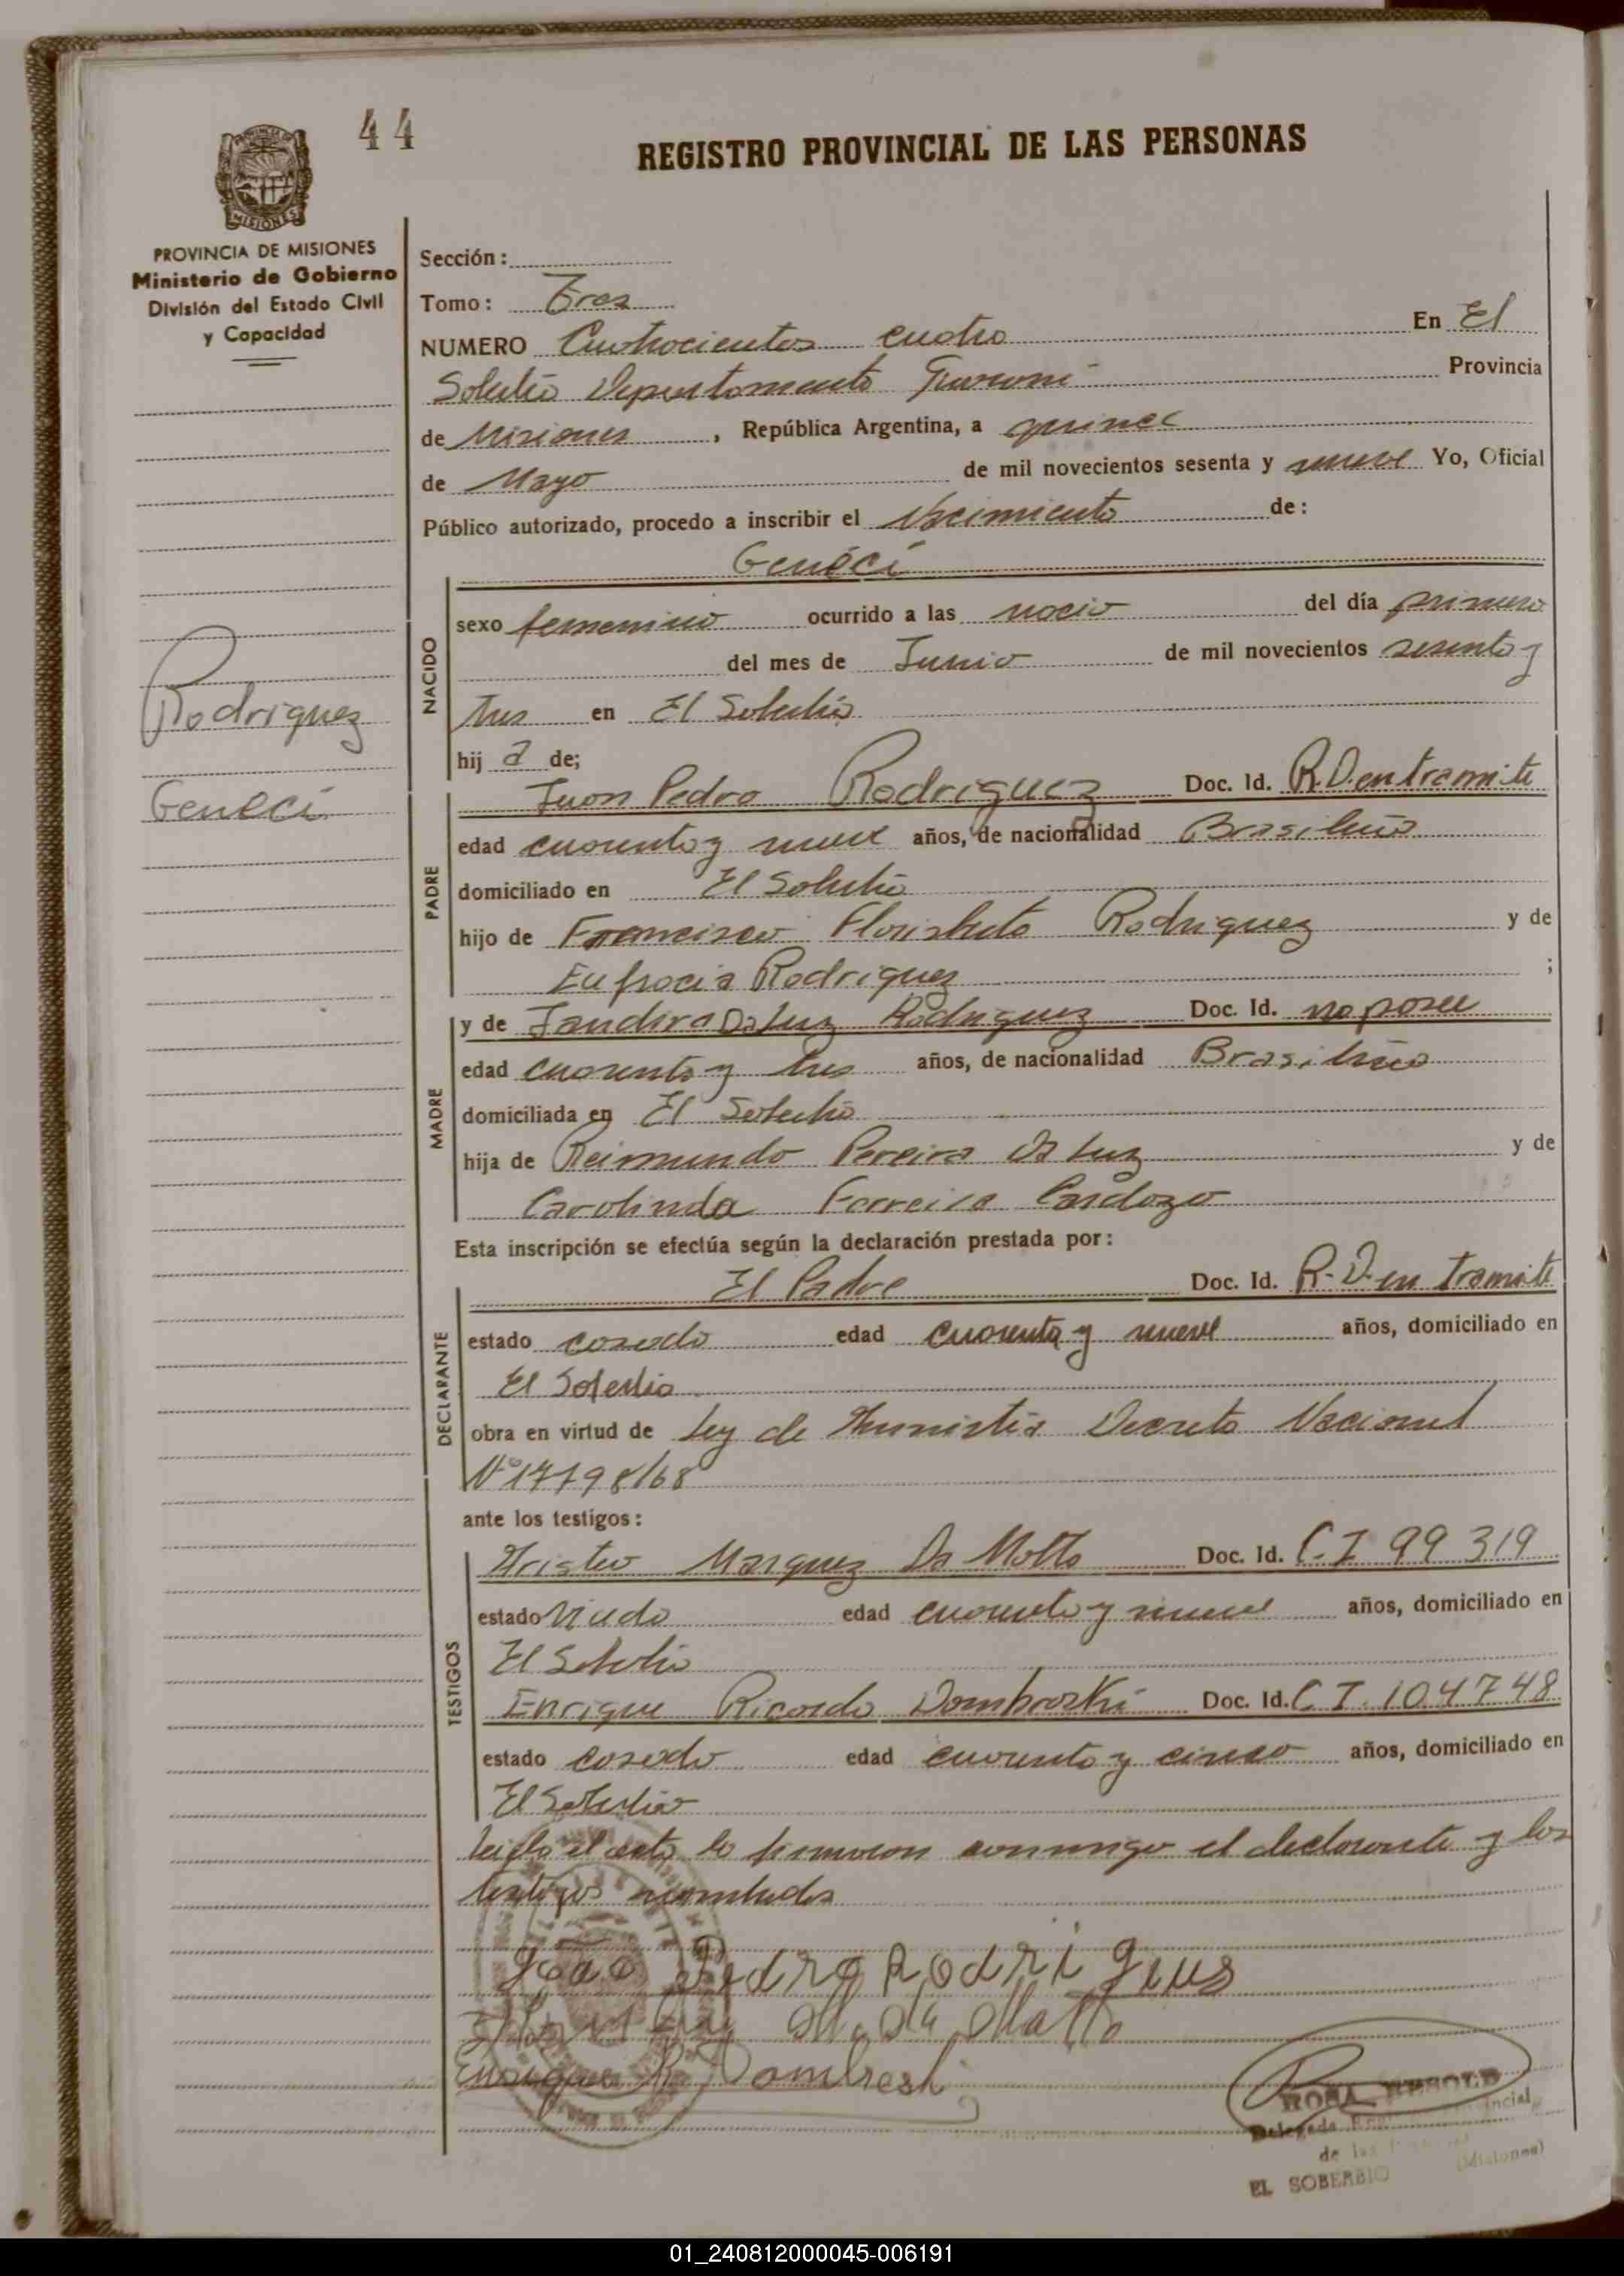 44
REGISTRO PROVINCIAL DE LAS PERSONAS
MISIONES
PROVINCIA DE MISIONES
Ministerio de Gobierno
División del Estado Civil
y Capacidad
Sección:
Tomo: Tres
NUMERO Cuatrocientos cuatro En El
Soberbio Departamento Guarani Provincia
de Misiones, República Argentina, a quince
de Mayo de mil novecientos sesenta y nueve Yo, Oficial
Público autorizado, procedo a inscribir el Nacimiento de:
Genéci
NACIDO
sexo femenino ocurrido a las del día primero
del mes de Junio de mil novecientos sesenta y
tres en El Soberbio
Rodriguez
Geneci
hij a de;
PADRE
Juan Pedro Rodriguez Doc. Id. R.D. en tramite
edad cuarenta y nueve años, de nacionalidad Brasileña
domiciliado en El Soberbio
hijo de Francisco Rodriguez y de
Eufrocia Rodriguez ;
MADRE
y de Jandira Da Luz Rodriguez Doc. Id. no posee
edad cuarenta y tres años, de nacionalidad Brasileña
domiciliada en El Soberbio
hija de Reimundo Pereira Da Luz y de
Carolinda Ferreira Cardozo
Esta inscripción se efectúa según la declaración prestada por:
DECLARANTE
El Padre Doc. Id. R.D. en tramite
estado casado edad cuarenta y nueve años, domiciliado en
El Soberbio
obra en virtud de Ley de Amnistia Decreto Nacional
Nº 17798/68
ante los testigos:
TESTIGOS
Aristeu Marquez Da Motta Doc. Id. C.I 99 319
estado Viudo edad cuarenta y nueve años, domiciliado en
El Soberbio
Enrique Ricardo Dombroski Doc. Id. C.I. 104748
estado casado edad cuarenta y cinco años, domiciliado en
El Soberbio
Leida el acta la firmaron conmigo el declarante y los
testigos nombrados
João Pedro Rodrigues
M. da Motta
Enrique R. Dombroski
ROSA
Delegada Provincial
de las
EL SOBERBIO (Misiones)
01_240812000045-006191